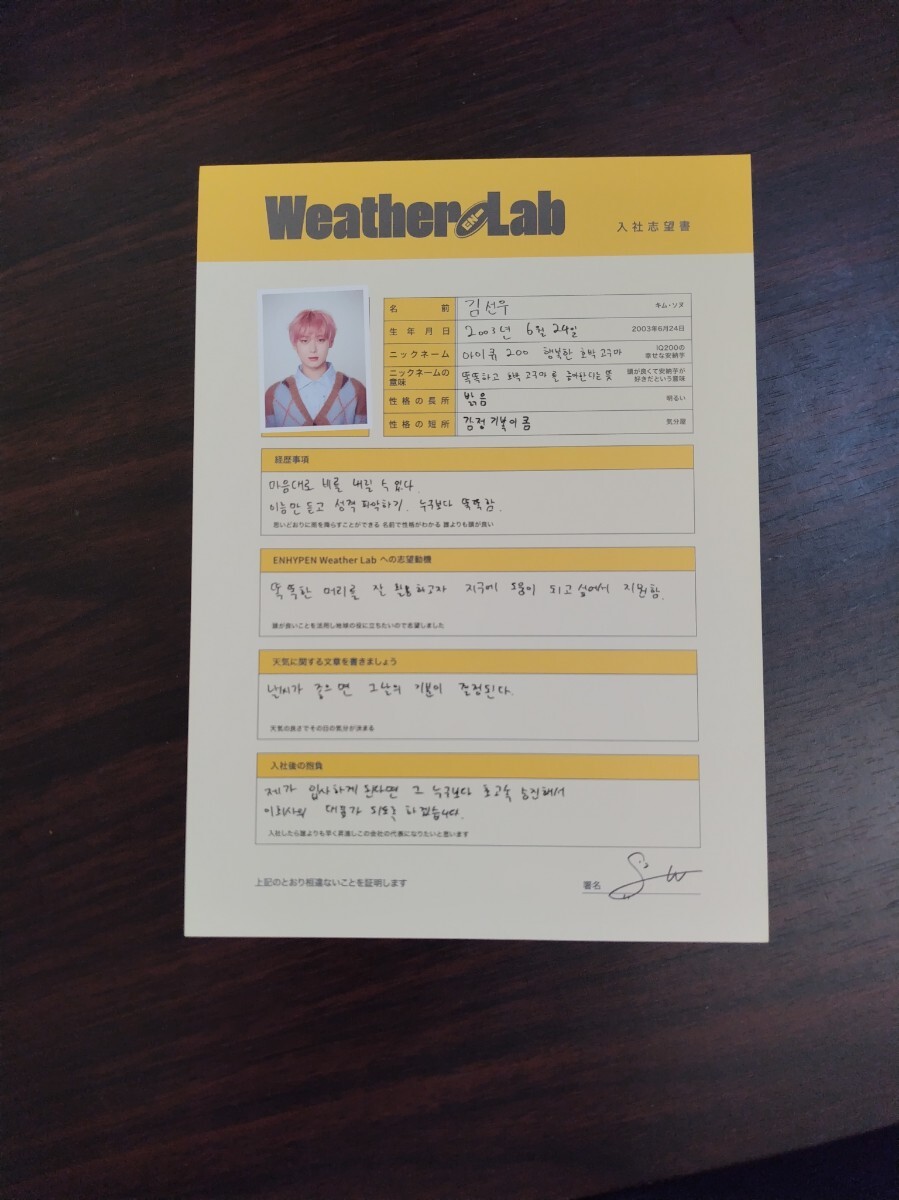 Weather EN- Lab
入社志望書
名 前 김선우 キム・ソヌ
生年月日 2003년 6월 24일 2003年6月24日
ニックネーム 아이큐 200 행복한 호박 고구마 IQ200の
幸せな安納芋
ニックネームの
意味 똑똑하고 호박 고구마를 좋아한다는 뜻 頭が良くて安納芋が
好きだという意味
性格の長所 밝음 明るい
性格の短所 감정 기복이 큼 気分屋
経歴事項
마음대로 비를 내릴 수 있다.
이름만 듣고 성격 파악하기. 누구보다 똑똑함.
思いどおりに雨を降らすことができる 名前で性格がわかる 誰よりも頭が良い
ENHYPEN Weather Lab への志望動機
똑똑한 머리를 잘 활용하고자 지구에 도움이 되고 싶어서 지원함.
頭が良いことを活用し地球の役に立ちたいので志望しました
天気に関する文章を書きましょう
날씨가 좋으면 그날의 기분이 결정된다.
天気の良さでその日の気分が決まる
入社後の抱負
제가 입사하게 된다면 그 누구보다 초고속 승진해서
이 회사의 대표가 되도록 하겠습니다.
入社したら誰よりも早く昇進しこの会社の代表になりたいと思います
上記のとおり相違ないことを証明します
署名